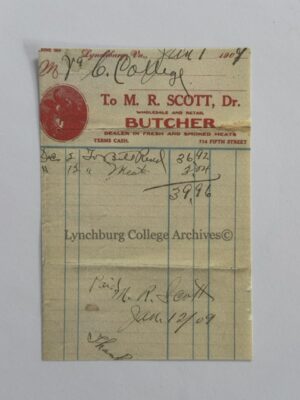 Lynchburg, Va., Jan 1 1909
M Va C. College
To M. R. SCOTT, Dr.
WHOLESALE AND RETAIL
BUTCHER
DEALER IN FRESH AND SMOKED MEATS
TERMS CASH. 714 FIFTH STREET
Dec 5 To Bill Rend 36.92
" 12 " Meat 3.04
39.96
Lynchburg College Archives©
Paid
M. R. Scott
Jan 12/09
Thanks